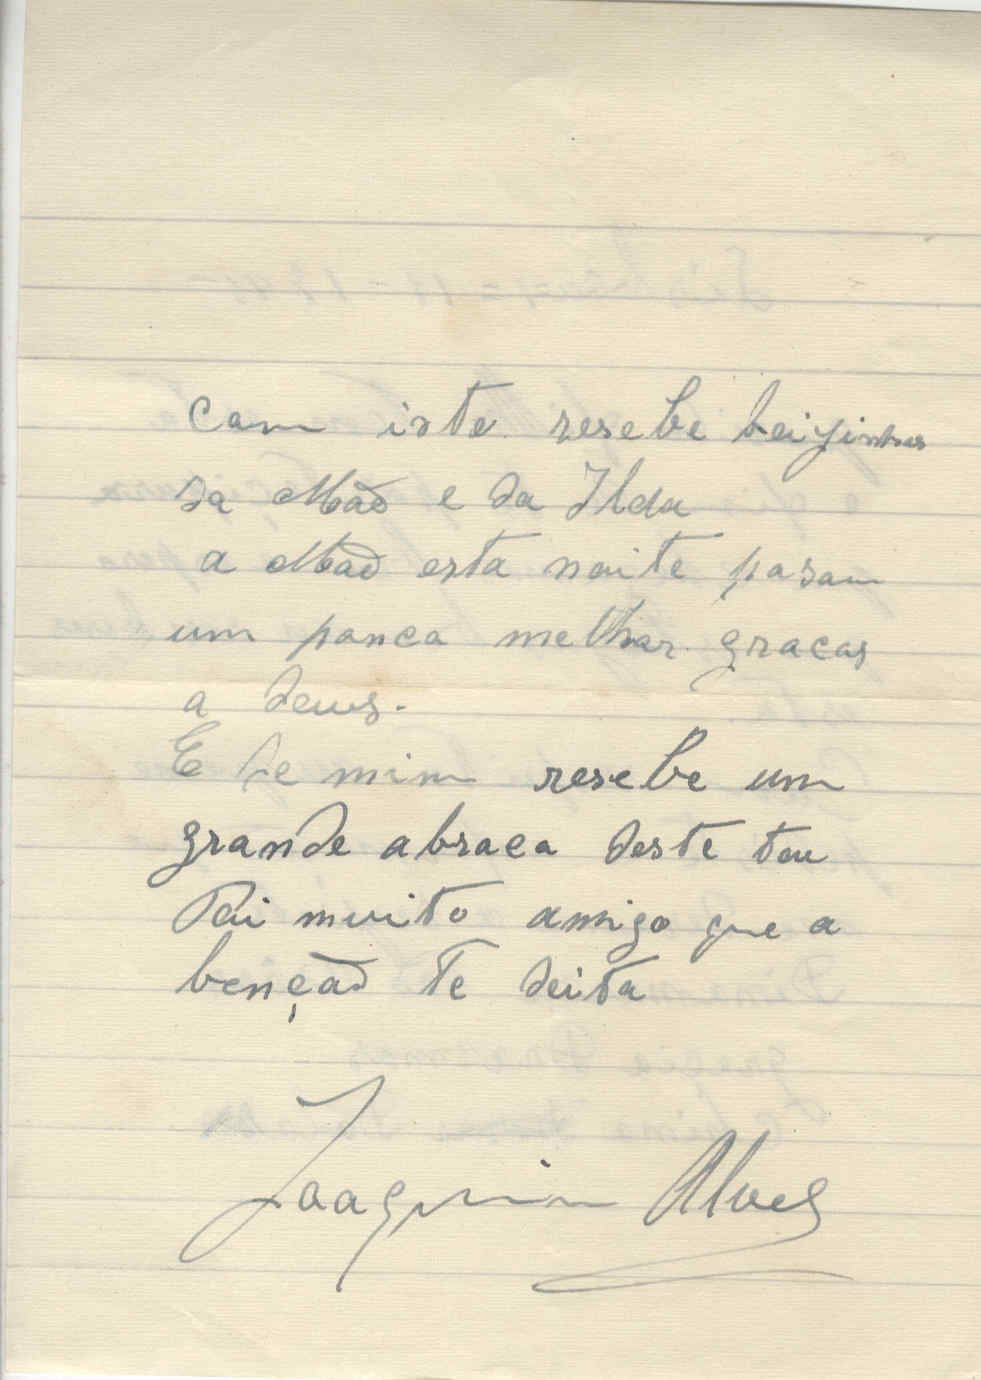 Com iste resebe beijinhos
da Mãe e da Ilda
a Mãe esta noite pasou
um pouco melhor graças
a Deus.
E de mim resebe um
grande abraço deste teu
Pai muito amigo que a
benção te deita
Joaquim Alves